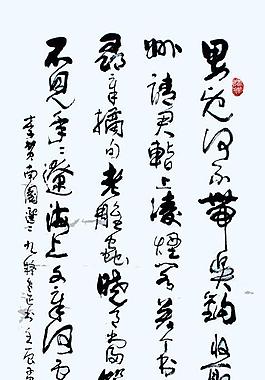 男兒何不帶吳鉤收取
州請君暫上凌煙閣若个書
尋章摘句老雕蟲曉月當
不見年年遼海上文章何
李賀南園選二 壬辰